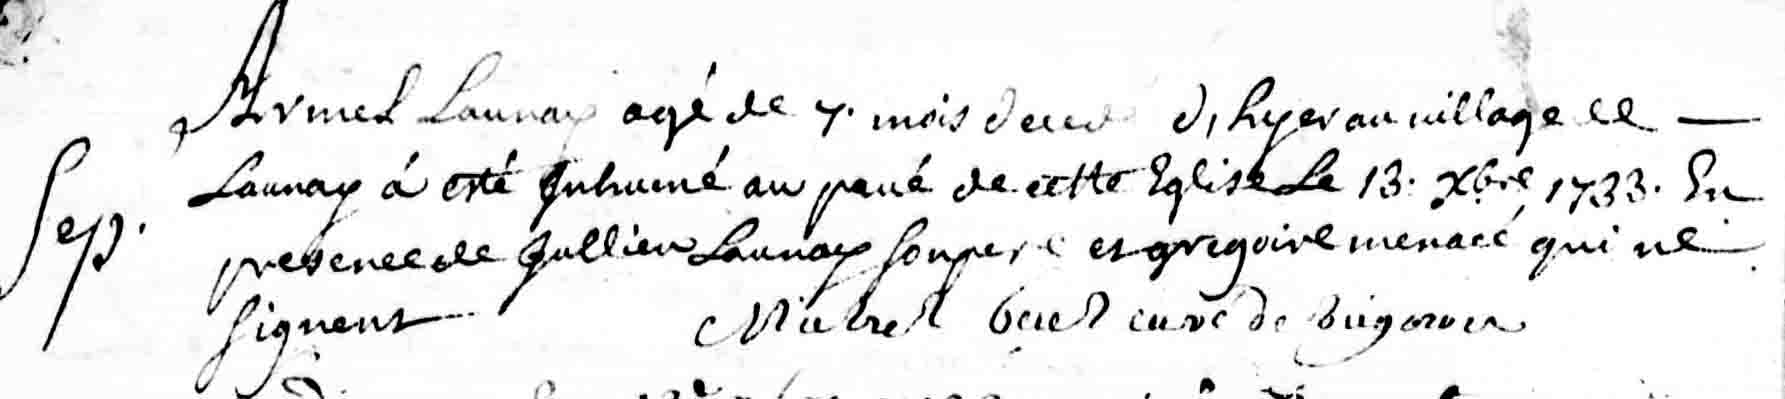 Armel Launay agé de 7. mois deced d'hyer au village de —
Sep. Launay á esté Inhumé au pavé de cette Eglise Le 13. Xbre 1733. En
presence de Jullien Launay son pere et gregoire menacé qui ne
signent Michel curé de